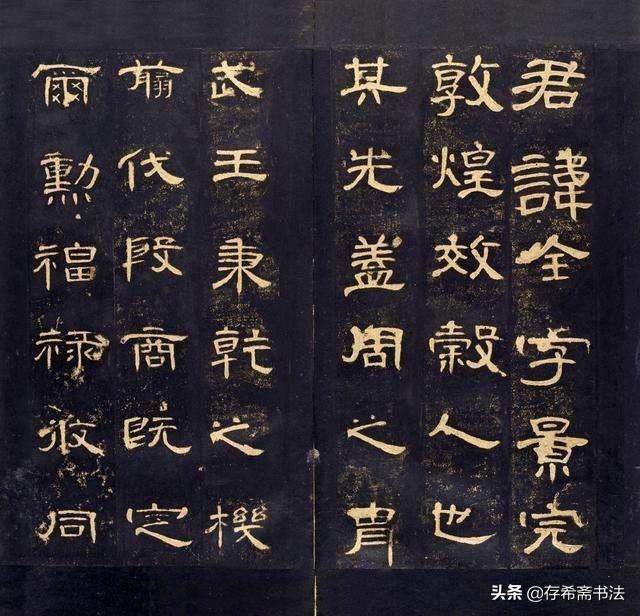 君諱全字景完
敦煌效穀人也
其先蓋周之胄
武王秉乾之機
翦伐殷商既定
爾勳福祿攸同
头条 @存希斋书法